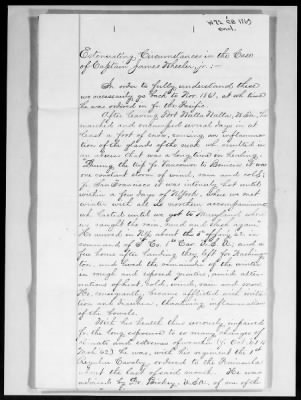 W 92 CB 1863
encl.
Extenuating Circumstances in the Case
of Captain James Wheeler, jr. :—
In order to fully understand these
we necessarily go back to Nov. 1861, at wh. time
he was ordered in fr. the Pacific.
After leaving Fort Walla Walla, W. Ter., he
marched and encamped several days in at
least a foot of snow, causing an inflammation
of the glands of the neck wh. resulted in
an abscess that was a long time in healing.
During the trip fr. Vancouver to Benicia it was
one constant storm of wind, rain and cold;
fr. San Francisco it was intensely hot until
within a few days of N. York. Here we met
winter with all its northern accompaniments
wh. lasted until we got to
we caught the rain, mud and slush again.
He arrived in N.Y. about the 5" in
command of Co. 1st Cav. U.S.A.; and a
few hours after landing they left for Washington
and lived the remainder of the winter
in rough and exposed quarters, amidst
of heat, cold, wind, rain and snow.
He, consequently, became afflicted with
and chronic inflammation
of the bowels.
With his health thus seriously impaired
fr. the long exposure to so many changes of
climate and extremes of weather (fr. Oct. 61 to
Mch. 62) he was, with his regiment the 1st
Regular Cavalry, ordered to the Peninsula
about the last of said month. He was
advised by Dr. U.S.A. of one of the